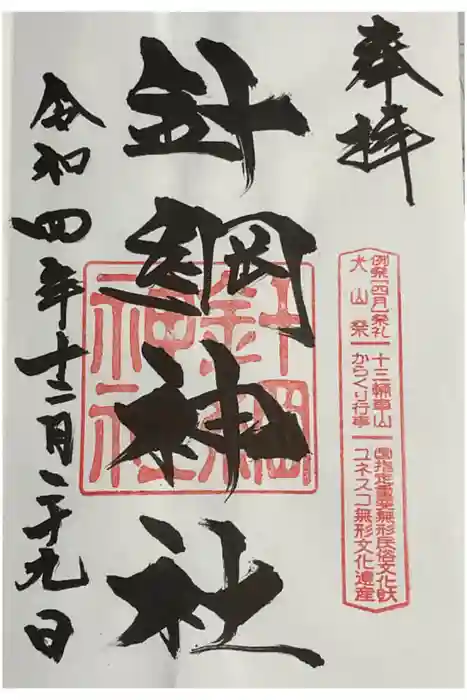 奉拝
例祭「四月」祭礼
犬山祭
十三輌車山
からくり行事
国指定重要無形民俗文化財
ユネスコ無形文化遺産
針綱神社
針綱
神社
令和四年十二月二十九日